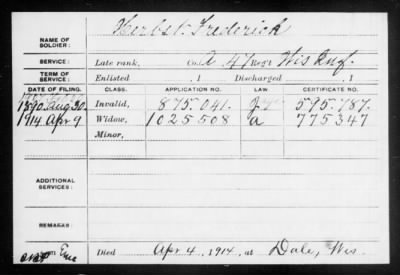 NAME OF SOLDIER: Herbst, Frederick
SERVICE: Late rank, Co. A 47 Reg't Wis Inf.
TERM OF SERVICE: Enlisted , 1 Discharged , 1
DATE OF FILING. CLASS. APPLICATION NO. LAW CERTIFICATE NO.
1890 Aug 30. Invalid, 875.041. 595.787.
1914 Apr 9 Widow, 1025508 a 775347
Minor,
ADDITIONAL SERVICES:
REMARKS:
Died Apr 4, 1914, at Dale, Wis.